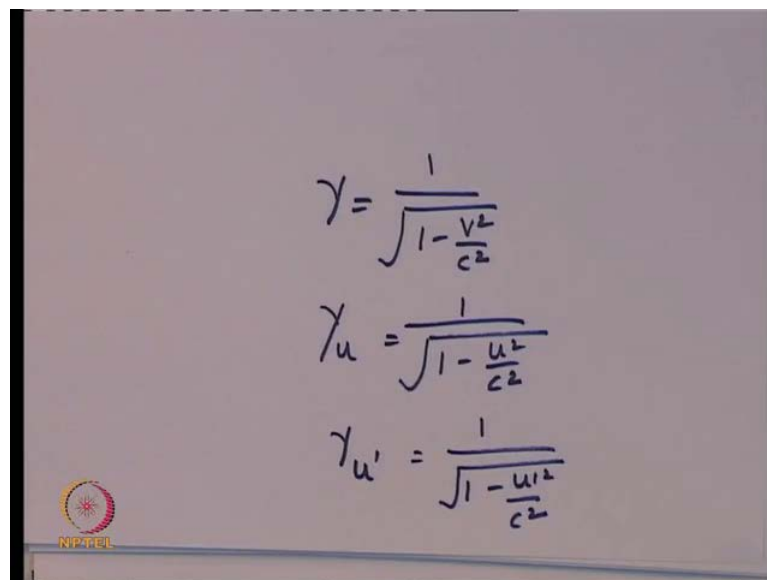 γ = 1 / √(1 - v²/c²)
γu = 1 / √(1 - u²/c²)
γu' = 1 / √(1 - u'²/c²)
NPTEL